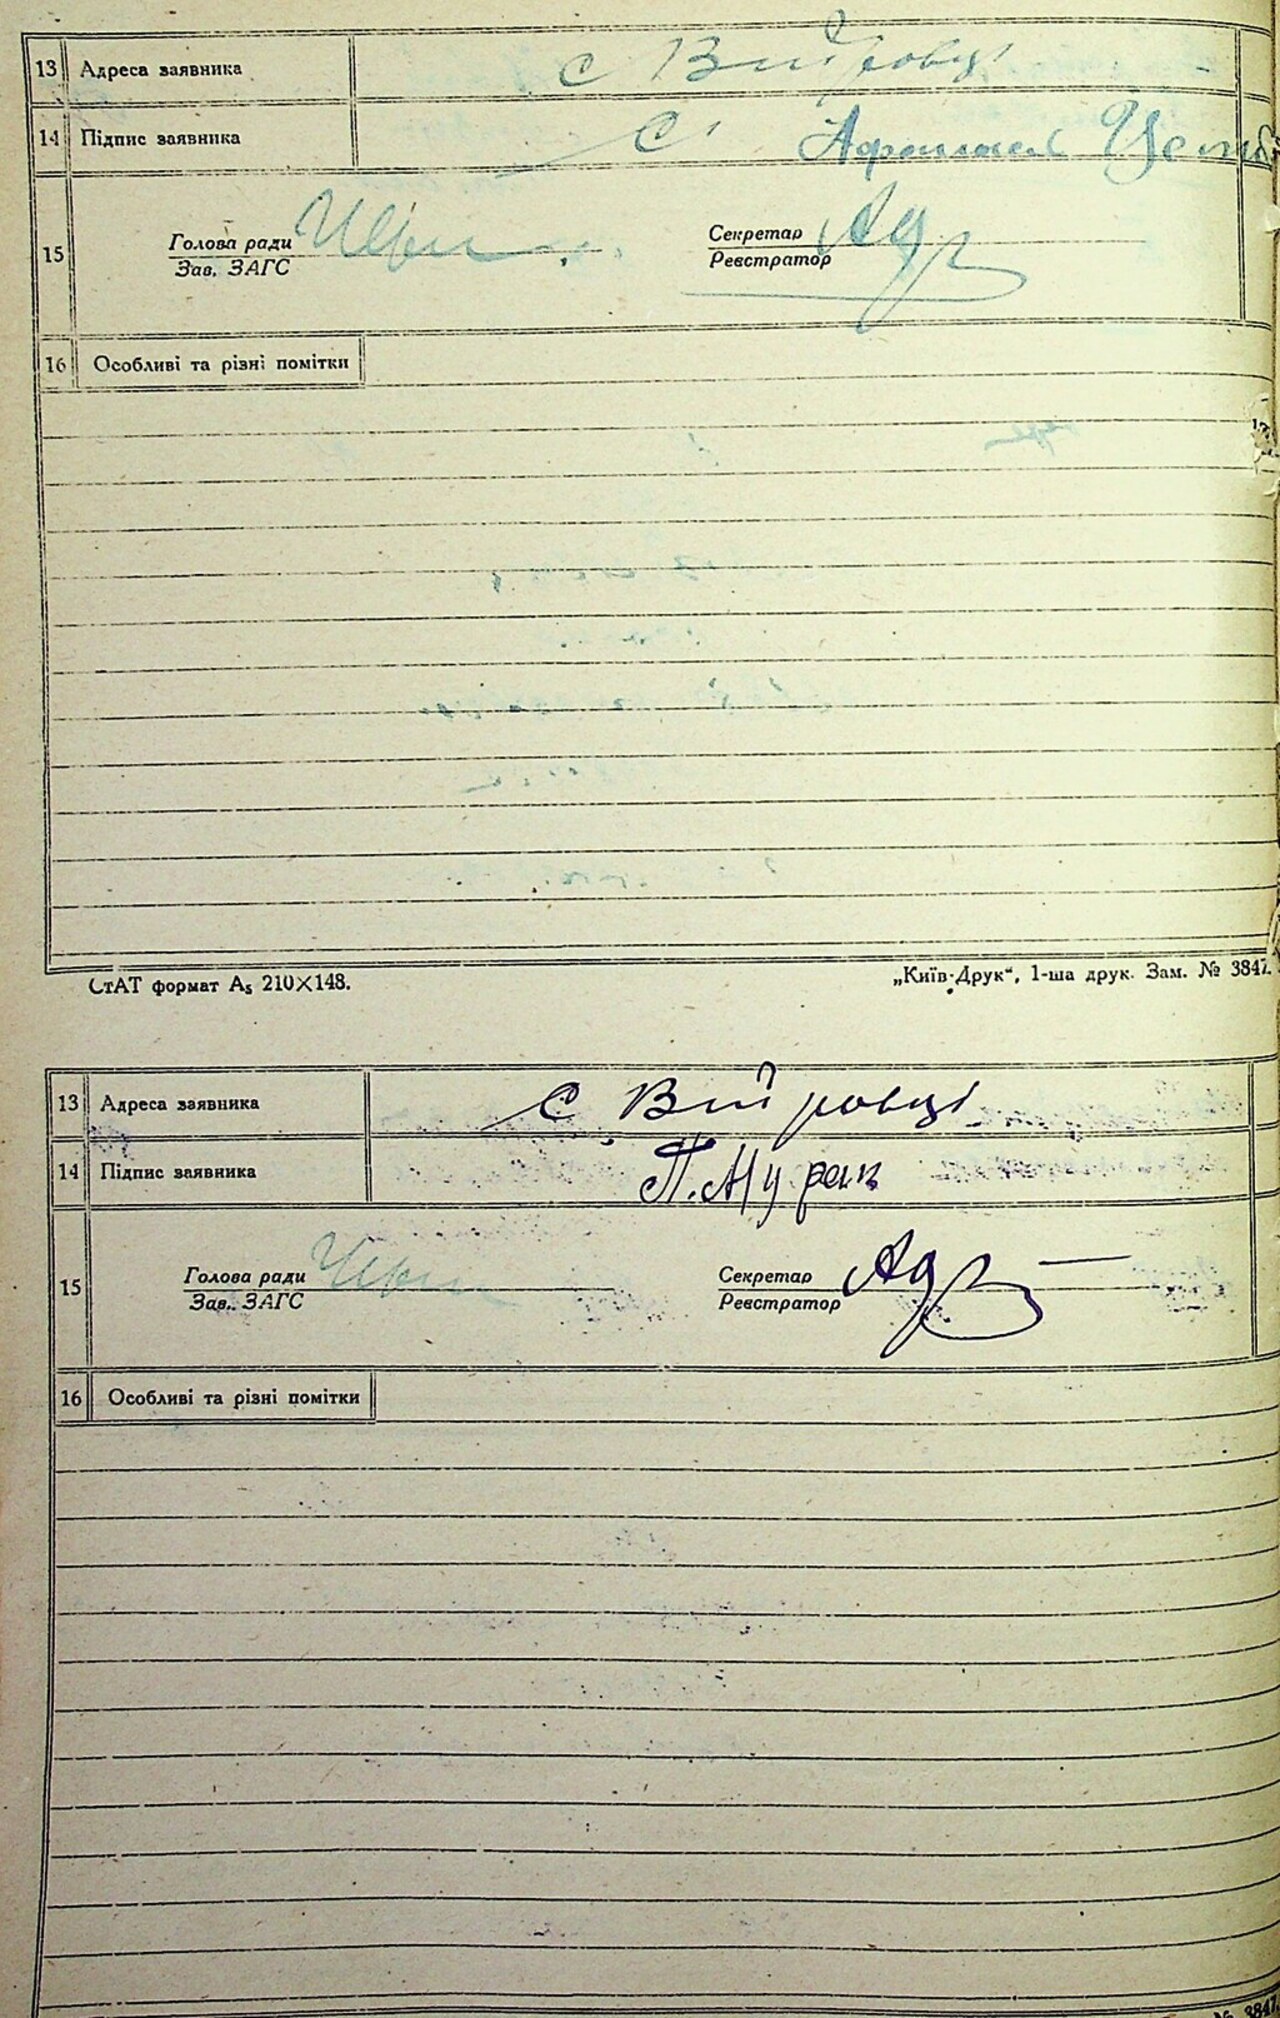 13 Адреса заявника с Війровці
14 Підпис заявника
15 Голова ради Секретар
Зав. ЗАГС Реєстратор
16 Особливі та різні помітки
СтАТ формат А₅ 210×148. „Київ-Друк“, 1-ша друк. Зам. № 3847.
13 Адреса заявника с Війровці
14 Підпис заявника П. Мурак
15 Голова ради Секретар
Зав. ЗАГС Реєстратор
16 Особливі та різні помітки
№ 3847.